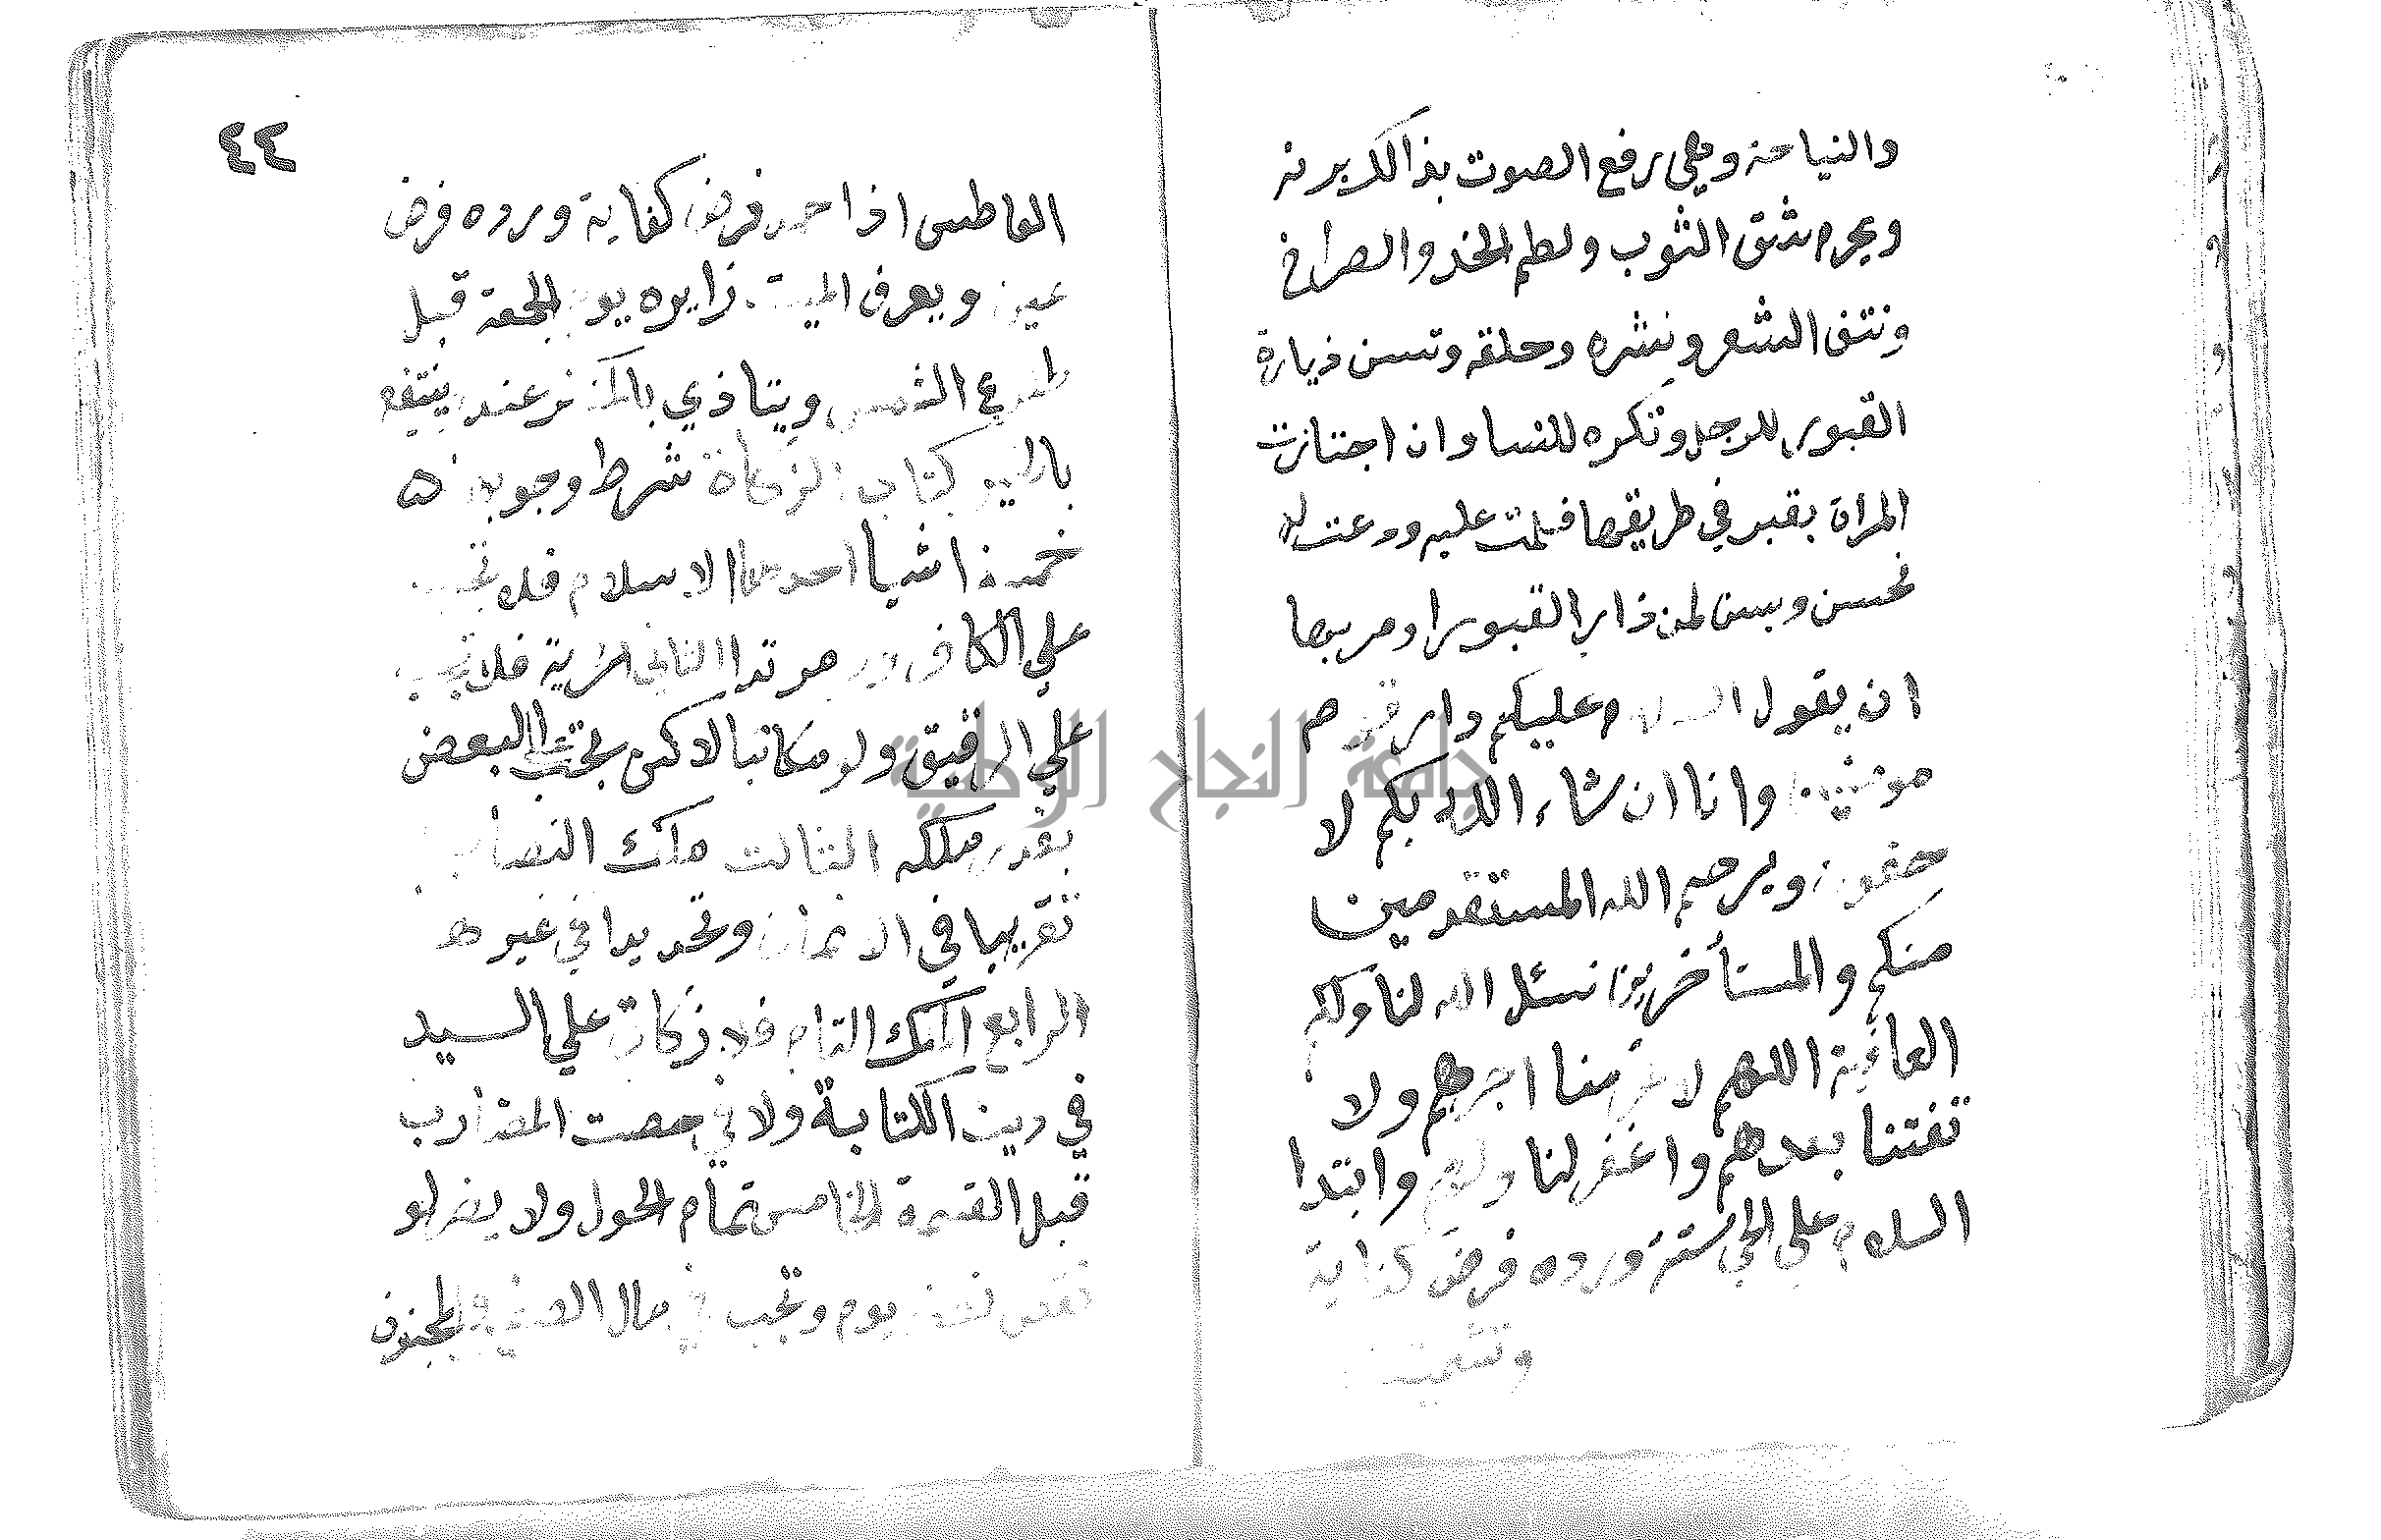 والنياحة وهي رفع الصوت بذالك برنة
ويحرم شق الثوب ولطم الخد والصراخ
ونتف الشعر ونشره وحلقه وتسن زيارة
القبور للرجل وتكره للنسا وان اجتازت
المراة بقبر في طريقها فسلمت عليه ودعت له
فحسن ويسن لمن زار القبور او مر بها
ان يقول السلام عليكم دار قوم
مومنين وانا ان شاء الله بكم لا
حقون ويرحم الله المستقدمين
منكم والمستأخرين نسئل الله لنا ولكم
العافية اللهم لا تحرمنا اجرهم ولا
تفتنا بعدهم واغفر لنا ولهم وابتدا
السلام على الحي سنة ورده فرض كفاية
وتشميت
٤٤
العاطس اذا حمد فرض كفاية ورده فرض
عين ويعرف الميت زايره يوم الجمعة قبل
طلوع الشمس ويتاذي بالمنكر عنده وينتفع
بالخير كتاب الزكاة شرط وجوبها ٥
خمسة اشيا احدها الاسلام فلا تجب
علي الكافر ولو مرتدا الثاني الحرية فلا تجب
علي الرقيق ولو مكاتبا لاكن تجب علي البعض
بقدر ملكه الثالث ملك النصاب
تقريبا في الاثمان وتحديدا في غيرها
الرابع الملك التام فلا زكاة علي السيد
في دين الكتابة ولا في حصت المضارب
قبل القسمة الخامس تمام الحول ولا يضر لو
نقص نصف يوم وتجب في مال الصغير والمجنون
جامعة النجاح الوطنية